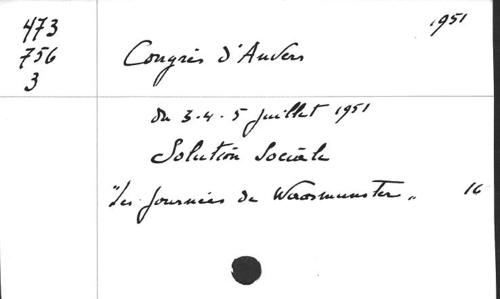 473
756
3
1951
Congrès d'Anvers
du 3.4.5 juillet 1951
Solution Sociale
"Les journées de Waasmunster" 16